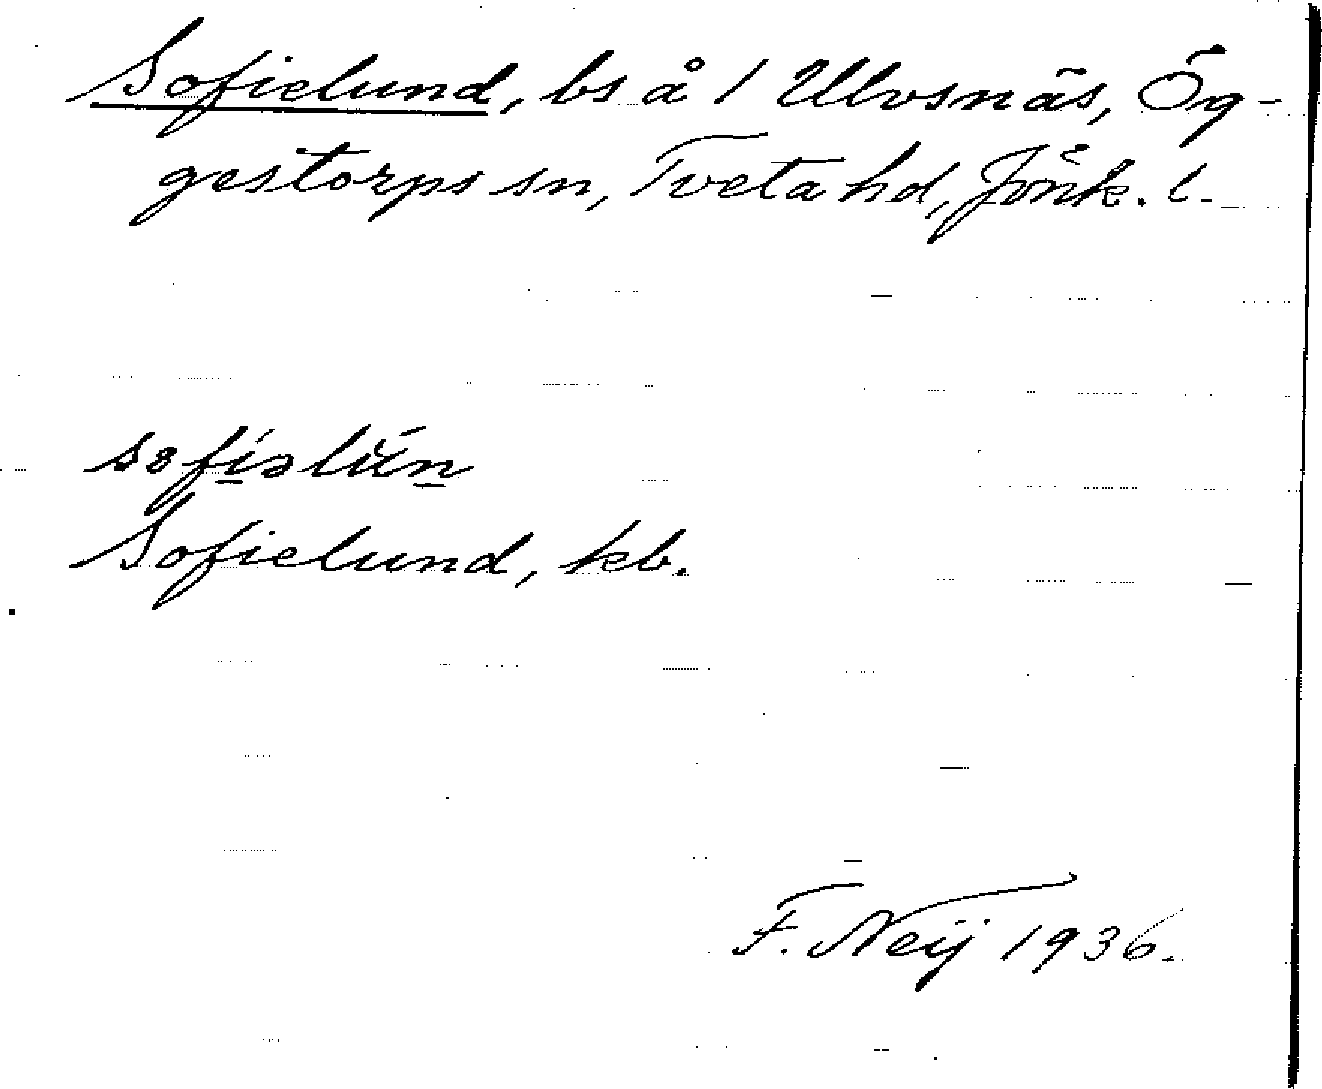 Sofielund, bs å 1 Ulvsnäs, Ög-
gestorps sn, Tveta hd, Jönk. l.
Sofielund, kb.
F. Neij 1936.